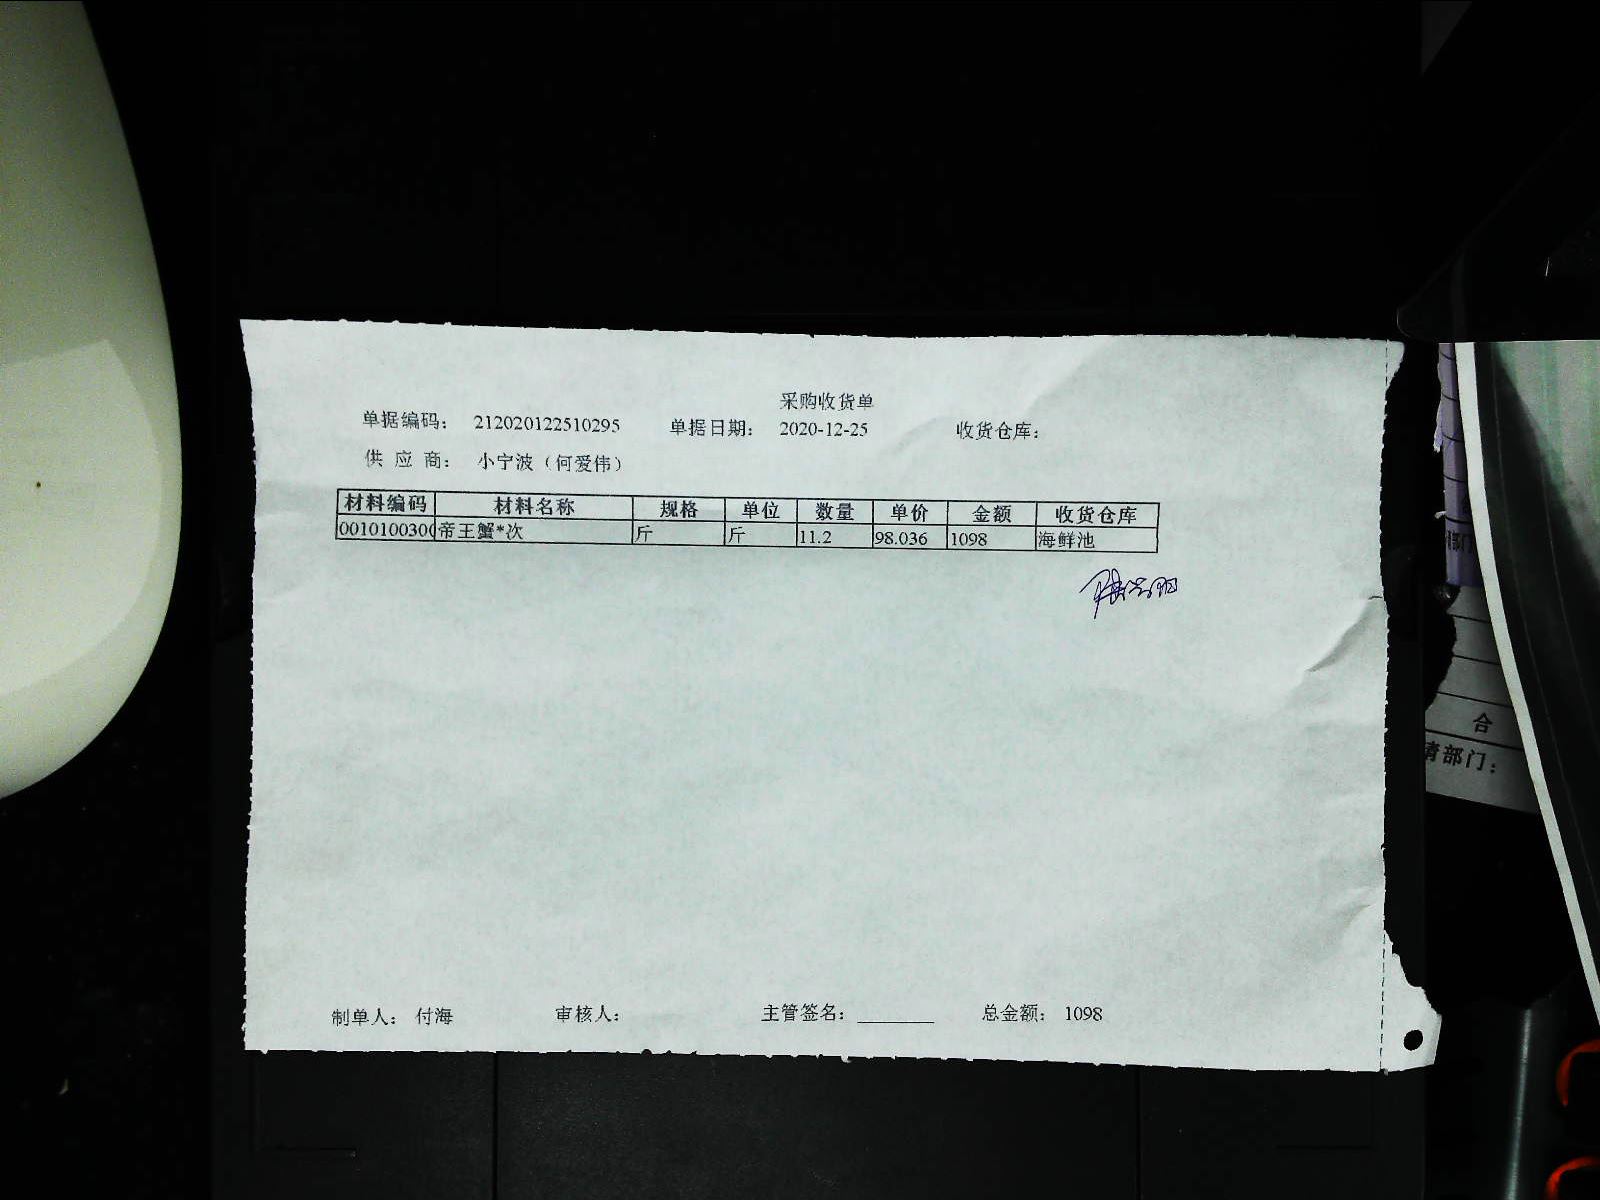 采购收货单
单据编码： 212020122510295 单据日期： 2020-12-25 收货仓库：
供 应 商： 小宁波（何爱伟）
材料编码 材料名称 规格 单位 数量 单价 金额 收货仓库
0010100300 帝王蟹*次 斤 斤 11.2 98.036 1098 海鲜池
制单人： 付海 审核人： 主管签名： 总金额： 1098
合
请部门：